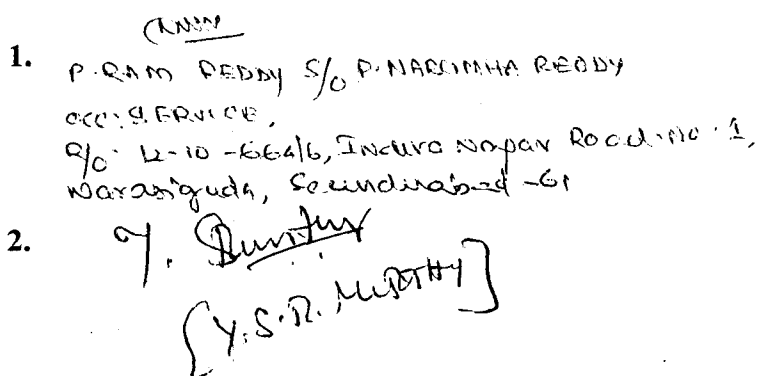 1.
P. RAM REDDY S/o P. NARSIMHA REDDY
OCC: SERVICE,
R/o. 12-10-664/6, Indira Nagar Road. No. 1,
Warasiguda, Secunderabad - 61
2.
[Y.S.R. MURTHY]